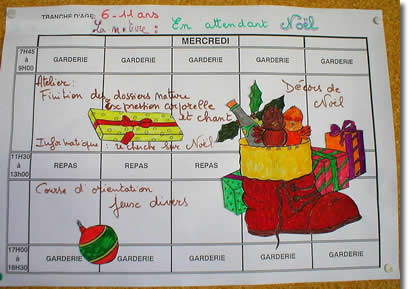 TRANCHE D'AGE: 6-11 ans
La nature: En attendant Noël
MERCREDI
7H45 à 9H00 GARDERIE GARDERIE GARDERIE GARDERIE GARDERIE
Atelier: Décors de Noël
Finition des dossiers nature
expression corporelle
et chant
Informatique: recherche sur Noël
11H30 à 13h00 REPAS REPAS REPAS
Course d'orientation
Jeux divers
17H00 à 18H30 GARDERIE GARDERIE GARDERIE GARDERIE GARDERIE